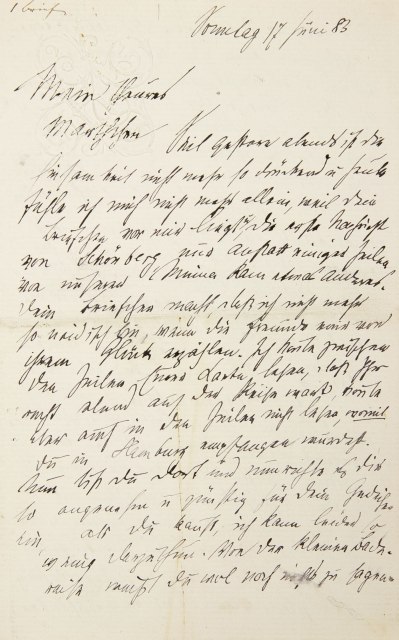 1 Brief
Sonntag 17 Juni 83
Mein theures
Marthchen Seit gestern abends ist die
Einsamkeit nicht mehr so drückend u heute
fühle ich mich nicht mehr allein, weil dein
Briefchen vor mir liegt, die erste Nachricht
von Schönberg und Anstatt einiger Zeilen
von unserer Minna kam etwas anderes.
Dein Briefchen macht daß ich nicht mehr
so neidisch bin, wenn die Freunde von
ihrem Glück erzählen. Ich konnte zwischen
den Zeilen lesen, daß Ihr
recht elend auf der Reise wart, konnte
aber auch in den Zeilen nicht lesen womit
du in Hamburg empfangen wurdest.
Nun bist du dort und nun richte es dir
so angenehm u günstig für dein Gedeihen
ein als du kannst, ich kann leider
wenig dazuthun. Von der kleinen Bade-
reise weißt du wol noch nichts zu sagen